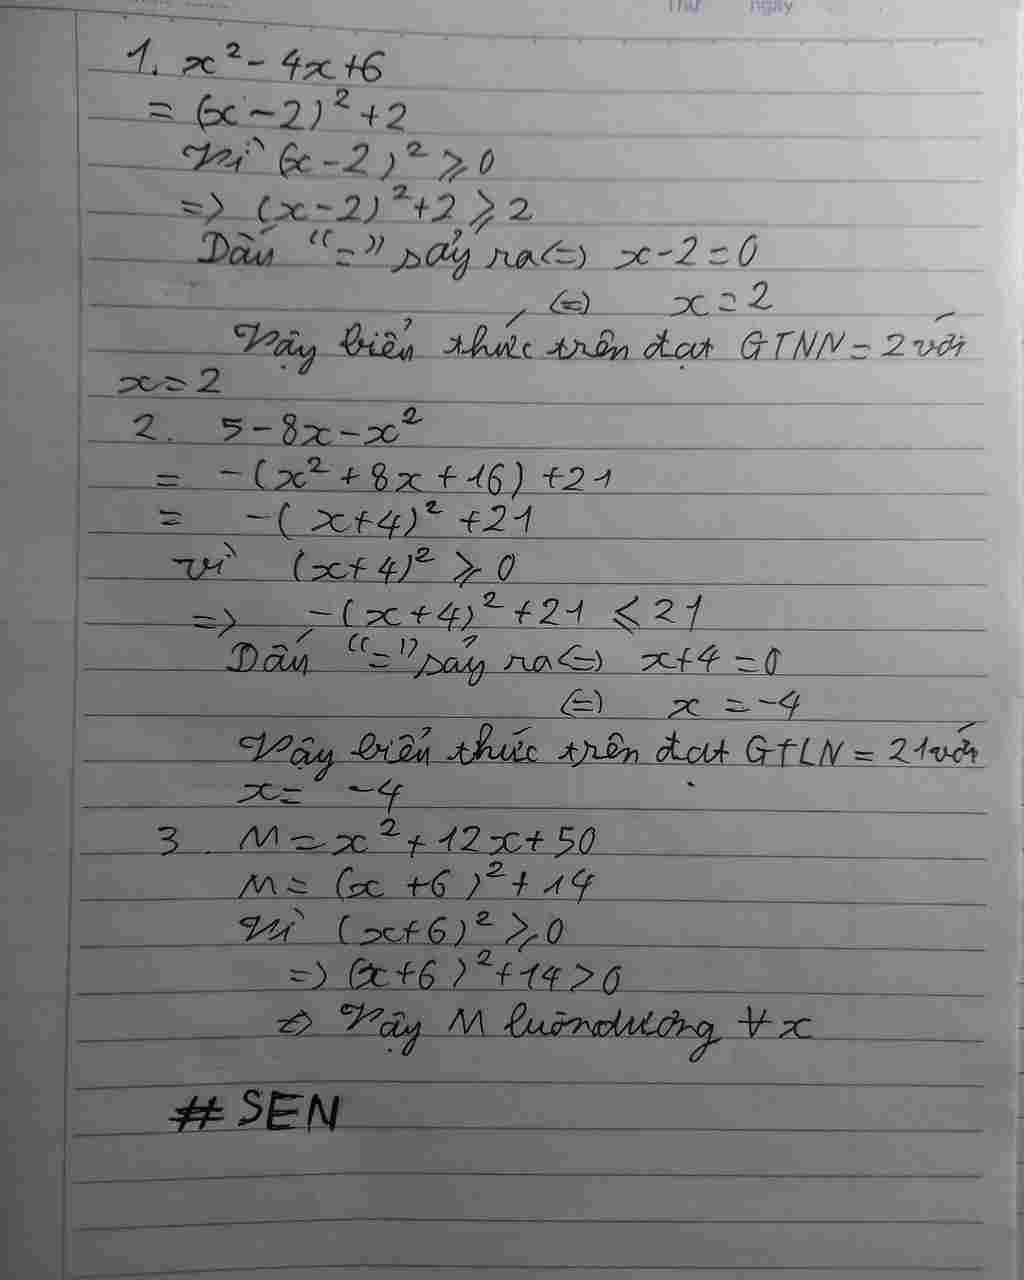 Thứ ngày
1. x² - 4x + 6
= (x - 2)² + 2
Vì (x - 2)² ⩾ 0
=> (x - 2)² + 2 ⩾ 2
Dấu "=" sảy ra <=> x - 2 = 0
<=> x = 2
Vậy biển thức trên đạt GTNN = 2 với
x = 2
2. 5 - 8x - x²
= -(x² + 8x + 16) + 21
= -(x + 4)² + 21
vì (x + 4)² ⩾ 0
=> -(x + 4)² + 21 ⩽ 21
Dấu "=" sảy ra <=> x + 4 = 0
<=> x = -4
Vậy biển thức trên đạt GTLN = 21 với
x = -4
3. M = x² + 12x + 50
M = (x + 6)² + 14
Vì (x + 6)² ⩾ 0
=> (x + 6)² + 14 > 0
=> Vậy M luôn dương ∀ x
# SEN